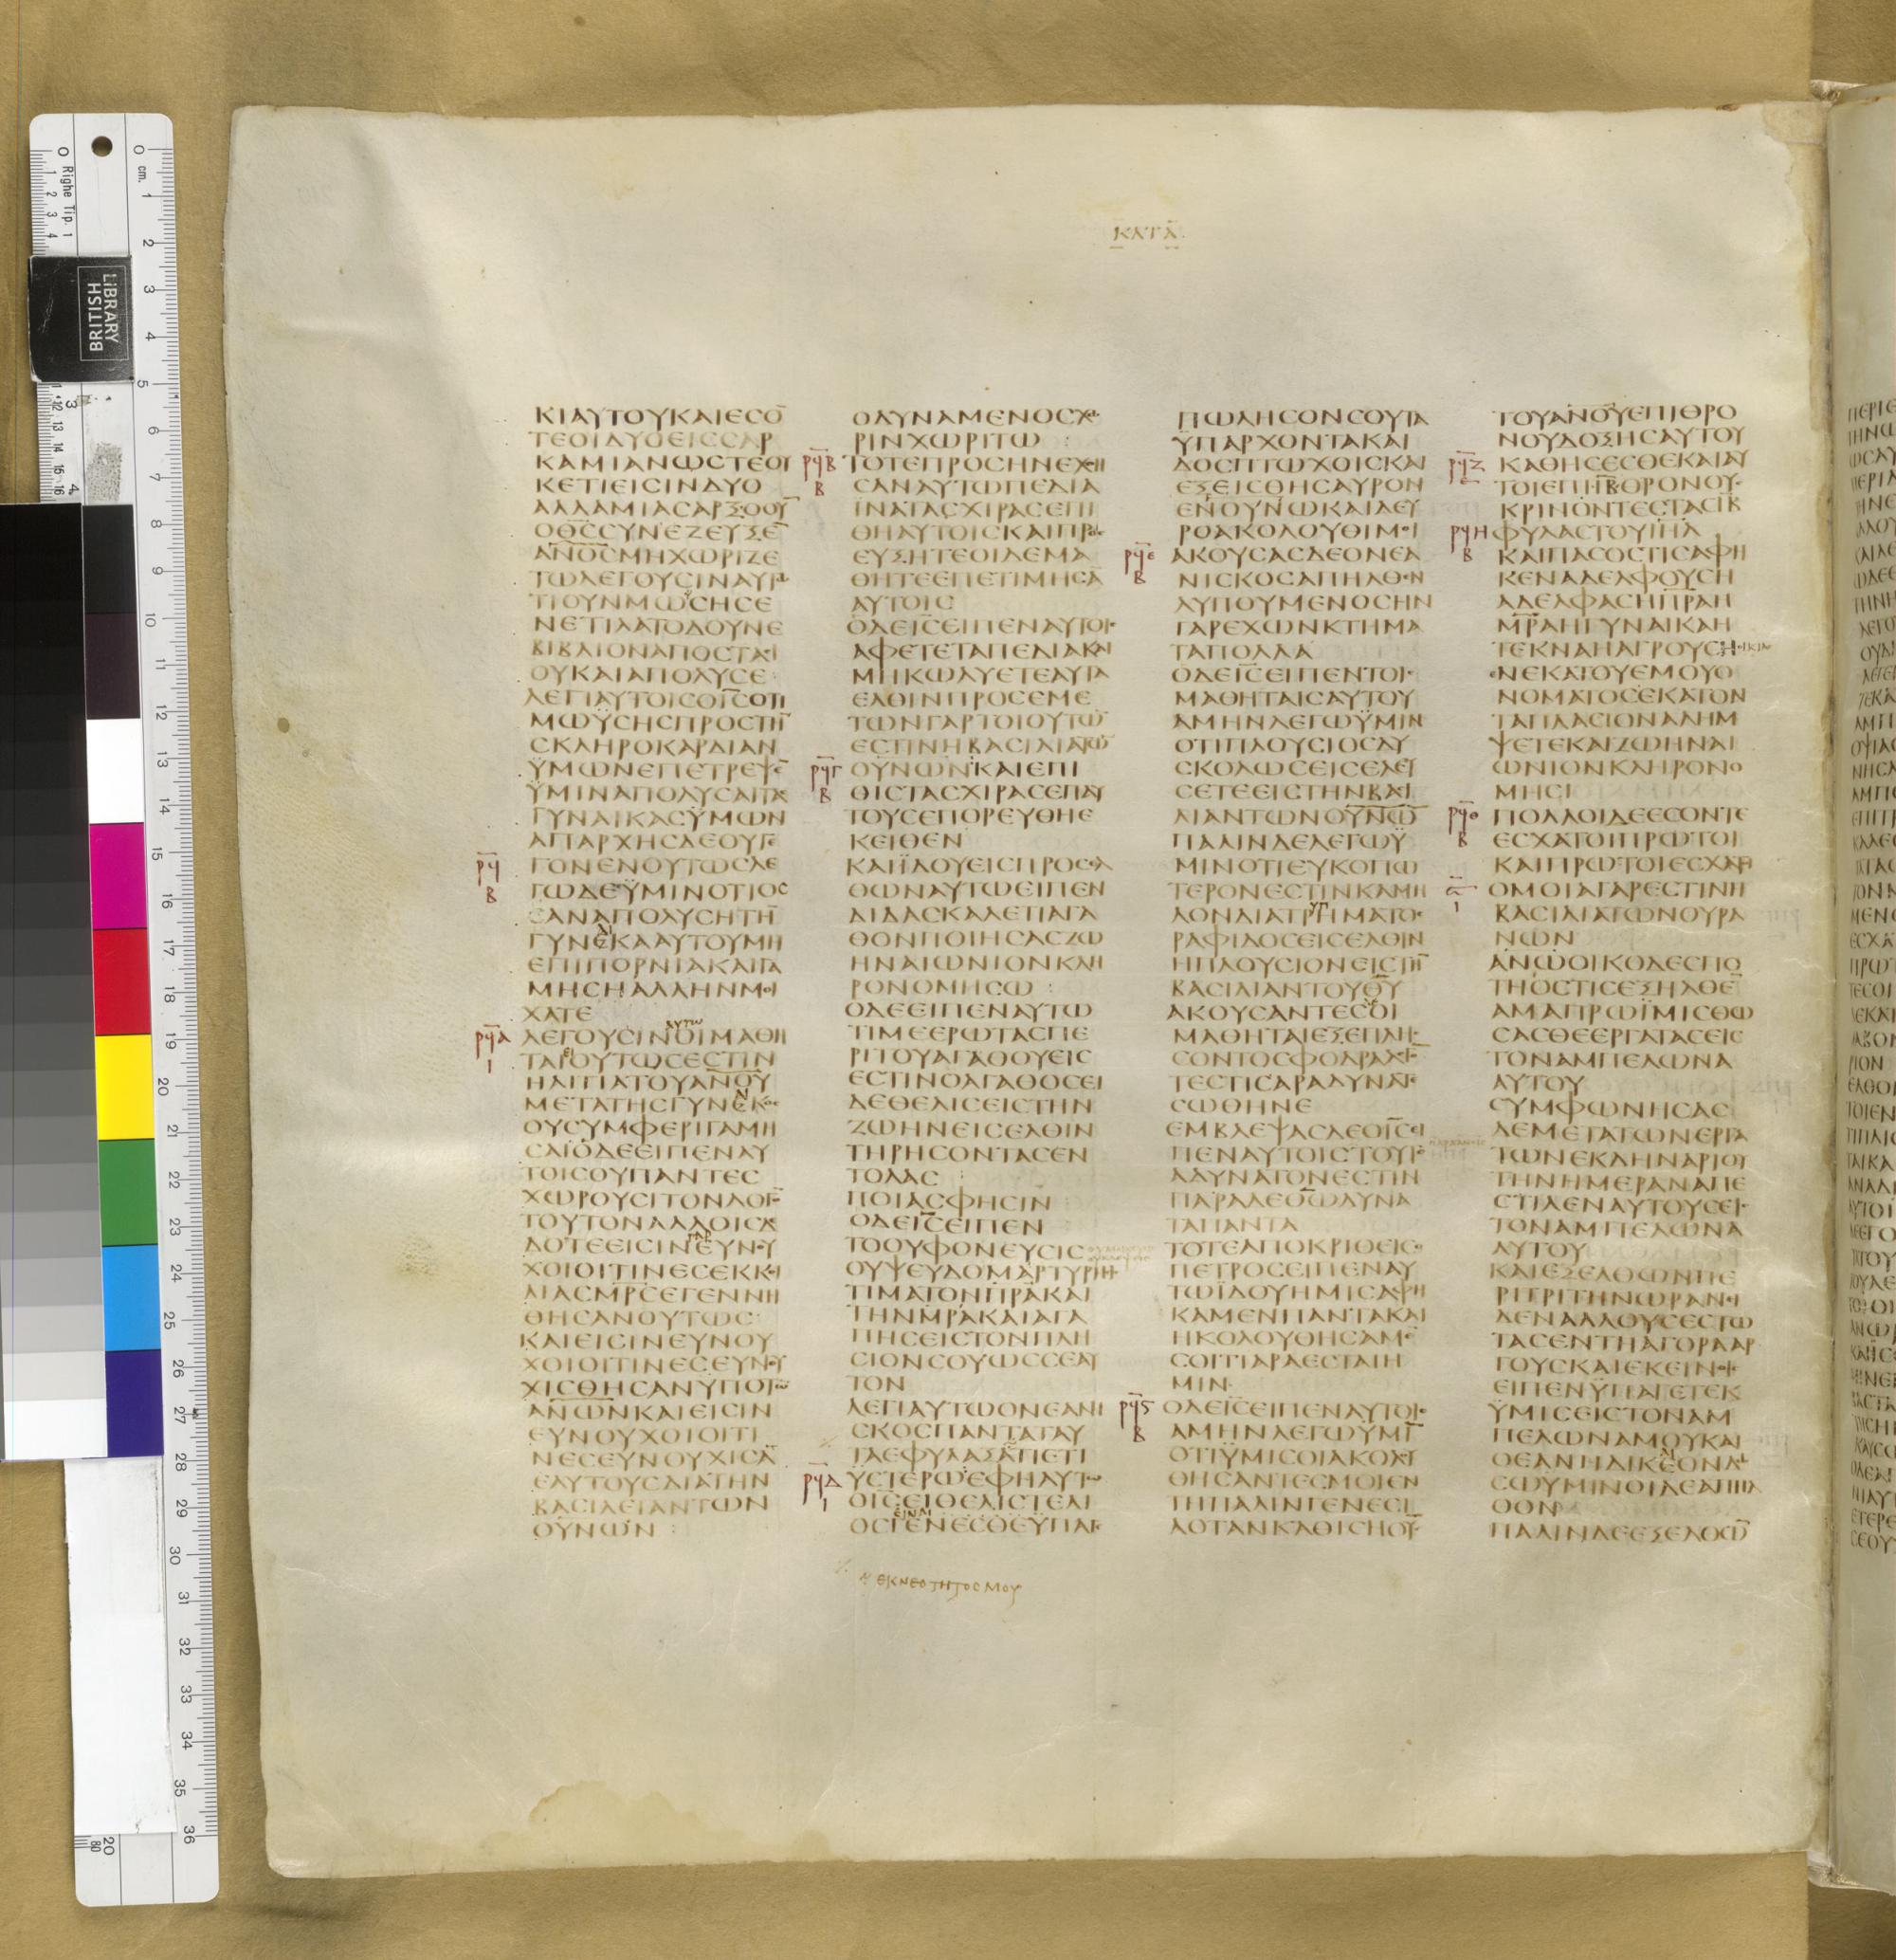 ΚΑΤΑ
ΚΙΑΥΤΟΥΚΑΙΕϹΟ̅
ΤΕΟΙΔΥΟΕΙϹϹΑΡ
ΚΑΜΙΑΝΩϹΤΕΟΥ
ΚΕΤΙΕΙϹΙΝΔΥΟ
ΑΛΛΑΜΙΑϹΑΡΞΟΟΥ̅
ΟΘ̅Ϲ̅ϹΥΝΕΖΕΥΞΕ̅
ΑΝ̅Ο̅Ϲ̅ΜΗΧΩΡΙΖΕ
ΤΩΛΕΓΟΥϹΙΝΑΥΤΩ
ΤΙΟΥΝΜΩΥϹΗϹΕ
ΝΕΤΙΛΑΤΟΔΟΥΝΕ
ΒΙΒΛΙΟΝΑΠΟϹΤΑϹΙ
ΟΥΚΑΙΑΠΟΛΥϹΕ
ΛΕΓΙΑΥΤΟΙϹΟΙ̅Ϲ̅ΟΤΙ
ΜΩΫϹΗϹΠΡΟϹΤΗ̅
ϹΚΛΗΡΟΚΑΡΔΙΑΝ
ΫΜΩΝΕΠΕΤΡΕΨΕ̅
ΫΜΙΝΑΠΟΛΥϹΑΙΤΑϹ
ΓΥΝΑΙΚΑϹΫΜΩΝ
ΑΠΑΡΧΗϹΔΕΟΥΓΕ
ΓΟΝΕΝΟΥΤΩϹΛΕ
ΓΩΔΕΫΜΙΝΟΤΙΟϹ
ΕΑΝΑΠΟΛΥϹΗΤΗ̅
ΓΥΝΕΚΑΑΥΤΟΥΜΗ
ΕΠΙΠΟΡΝΙΑΚΑΙΓΑ
ΜΗϹΗΑΛΛΗΝΜΟΙ
ΧΑΤΕ
ΛΕΓΟΥϹΙΝΟΙΜΑΘΗ
ΤΑΙΟΥΤΩϹΕϹΤΙΝ
ΗΑΙΤΙΑΤΟΥΑΝ̅Ο̅Υ̅
ΜΕΤΑΤΗϹΓΥΝΕΚΟϹ
ΟΥϹΥΜΦΕΡΙΓΑΜΗ
ϹΑΙΟΔΕΕΙΠΕΝΑΥ
ΤΟΙϹΟΥΠΑΝΤΕϹ
ΧΩΡΟΥϹΙΤΟΝΛΟΓΟ̅
ΤΟΥΤΟΝΑΛΛΟΙϹΔΕ
ΔΟΤΕΕΙϹΙΝΕΥΝΟΥ
ΧΟΙΟΙΤΙΝΕϹΕΚΚΟΙ
ΛΙΑϹΜ̅Ρ̅Ϲ̅ΕΓΕΝΝΗ
ΘΗϹΑΝΟΥΤΩϹ
ΚΑΙΕΙϹΙΝΕΥΝΟΥ
ΧΟΙΟΙΤΙΝΕϹΕΥΝΟΥ
ΧΙϹΘΗϹΑΝΫΠΟΤΩ̅
ΑΝ̅Ω̅Ν̅ΚΑΙΕΙϹΙΝ
ΕΥΝΟΥΧΟΙΟΙΤΙ
ΝΕϹΕΥΝΟΥΧΙϹΑ̅
ΕΑΥΤΟΥϹΔΙΑΤΗΝ
ΒΑϹΙΛΕΙΑΝΤΩΝ
ΟΥΝΩΝ
ΟΔΥΝΑΜΕΝΟϹΧΩ
ΡΙΝΧΩΡΙΤΩ
ΤΟΤΕΠΡΟϹΗΝΕΧΘΗ
ϹΑΝΑΥΤΩΠΕΔΙΑ
ΙΝΑΤΑϹΧΙΡΑϹΕΠΙ
ΘΗΑΥΤΟΙϹΚΑΙΠΡΟϹ
ΕΥΞΗΤΕΟΙΔΕΜΑ
ΘΗΤΕΕΠΕΤΙΜΗϹΑ̅
ΑΥΤΟΙϹ
ΟΔΕΙ̅Ϲ̅ΕΙΠΕΝΑΥΤΟΙϹ
ΑΦΕΤΕΤΑΠΕΔΙΑΚΑΙ
ΜΗΚΩΛΥΕΤΕΑΥΤΑ
ΕΛΘΙΝΠΡΟϹΕΜΕ
ΤΩΝΓΑΡΤΟΙΟΥΤΩ̅
ΕϹΤΙΝΗΒΑϹΙΛΙΑΤΩ̅
ΟΥΝΩΝΚΑΙΕΠΙ
ΘΙϹΤΑϹΧΙΡΑϹΕΠΑΥ
ΤΟΥϹΕΠΟΡΕΥΘΗΕ
ΚΕΙΘΕΝ
ΚΑΙΪΔΟΥΕΙϹΠΡΟϹΕΛ
ΘΩΝΑΥΤΩΕΙΠΕΝ
ΔΙΔΑϹΚΑΛΕΤΙΑΓΑ
ΘΟΝΠΟΙΗϹΑϹΖΩ
ΗΝΑΙΩΝΙΟΝΚΛΗ
ΡΟΝΟΜΗϹΩ
ΟΔΕΕΙΠΕΝΑΥΤΩ
ΤΙΜΕΕΡΩΤΑϹΠΕ
ΡΙΤΟΥΑΓΑΘΟΥΕΙϹ
ΕϹΤΙΝΟΑΓΑΘΟϹΕΙ
ΔΕΘΕΛΙϹΕΙϹΤΗΝ
ΖΩΗΝΕΙϹΕΛΘΙΝ
ΤΗΡΗϹΟΝΤΑϹΕΝ
ΤΟΛΑϹ
ΠΟΙΑϹΦΗϹΙΝ
ΟΔΕΙ̅Ϲ̅ΕΙΠΕΝ
ΤΟΟΥΦΟΝΕΥϹΙϹ
ΟΥΨΕΥΔΟΜΑΡΤΥΡΗϹ
ΤΙΜΑΤΟΝΠ̅Ρ̅Α̅ΚΑΙ
ΤΗΝΜ̅Ρ̅Α̅ΚΑΙΑΓΑ
ΠΗϹΕΙϹΤΟΝΠΛΗ
ϹΙΟΝϹΟΥΩϹϹΕΑΥ
ΤΟΝ
ΛΕΓΙΑΥΤΩΟΝΕΑΝΙ
ϹΚΟϹΠΑΝΤΑΤΑΥ
ΤΑΕΦΥΛΑΞΑΤΙΕΤΙ
ΥϹΤΕΡΩΕΦΗΑΥΤΩ
ΟΙϹΕΙΘΕΛΙϹΤΕΛΙ
ΟϹΓΕΝΕϹΘΕΫΠΑΓΕ
ΝΕΚΝΕΟΤΗΤΟϹΜΟΥ
ΠΩΛΗϹΟΝϹΟΥΤΑ
ΫΠΑΡΧΟΝΤΑΚΑΙ
ΔΟϹΠΤΩΧΟΙϹΚΑΙ
ΕΞΕΙϹΘΗϹΑΥΡΟΝ
ΕΝΟΥΝΩΚΑΙΔΕΥ
ΡΟΑΚΟΛΟΥΘΙΜΟΙ
ΑΚΟΥϹΑϹΔΕΟΝΕΑ
ΝΙϹΚΟϹΑΠΗΛΘΕΝ
ΛΥΠΟΥΜΕΝΟϹΗΝ
ΓΑΡΕΧΩΝΚΤΗΜΑ
ΤΑΠΟΛΛΑ
ΟΔΕΙ̅Ϲ̅ΕΙΠΕΝΤΟΙϹ
ΜΑΘΗΤΑΙϹΑΥΤΟΥ
ΑΜΗΝΛΕΓΩΫΜΙΝ
ΟΤΙΠΛΟΥϹΙΟϹΔΥ
ϹΚΟΛΩϹΕΙϹΕΛΕΥ
ϹΕΤΕΕΙϹΤΗΝΒΑϹΙ
ΛΙΑΝΤΩΝΟΥ̅Ν̅Ω̅
ΠΑΛΙΝΔΕΛΕΓΩΫ
ΜΙΝΟΤΙΕΥΚΟΠΩ
ΤΕΡΟΝΕϹΤΙΝΚΑΜΗ
ΛΟΝΔΙΑΤΡΥΠΗΜΑΤΟϹ
ΡΑΦΙΔΟϹΕΙϹΕΛΘΙΝ
ΗΠΛΟΥϹΙΟΝΕΙϹΤΗ̅
ΒΑϹΙΛΙΑΝΤΟΥΘ̅Υ̅
ΑΚΟΥϹΑΝΤΕϹΟΙ
ΜΑΘΗΤΑΙΕΞΕΠΛΗϹ
ϹΟΝΤΟϹΦΟΔΡΑΛΕΓΟ̅
ΤΕϹΤΙϹΑΡΑΔΥΝΑΤΕ
ϹΩΘΗΝΕ
ΕΜΒΛΕΨΑϹΔΕΟΙ̅Ϲ̅ΕΙ
ΠΕΝΑΥΤΟΙϹΤΟΥΤΟ
ΑΔΥΝΑΤΟΝΕϹΤΙΝ
ΠΑΡΑΔΕΘ̅Ω̅ΔΥΝΑ
ΤΑΠΑΝΤΑ
ΤΟΤΕΑΠΟΚΡΙΘΕΙϹΟ
ΠΕΤΡΟϹΕΙΠΕΝΑΥ
ΤΩΪΔΟΥΗΜΙϹΑΦΗ
ΚΑΜΕΝΠΑΝΤΑΚΑΙ
ΗΚΟΛΟΥΘΗϹΑΜΕ̅
ϹΟΙΤΙΑΡΑΕϹΤΑΙΗ
ΜΙΝ
ΟΔΕΙ̅Ϲ̅ΕΙΠΕΝΑΥΤΟΙϹ
ΑΜΗΝΛΕΓΩΫΜΙ̅
ΟΤΙΫΜΙϹΟΙΑΚΟΛΟΥ
ΘΗϹΑΝΤΕϹΜΟΙΕΝ
ΤΗΠΑΛΙΝΓΕΝΕϹΙ
ΑΟΤΑΝΚΑΘΙϹΗΟΥ̅Ϲ̅
ΤΟΥΑΝ̅Ο̅Υ̅ΕΠΙΘΡΟ
ΝΟΥΔΟΞΗϹΑΥΤΟΥ
ΚΑΘΗϹΕϹΘΕΚΑΙΑΥ
ΤΟΙΕΠΙΙ̅Β̅ΘΡΟΝΟΥϹ
ΚΡΙΝΟΝΤΕϹΤΑϹΙ̅Β̅
ΦΥΛΑϹΤΟΥΙ̅Η̅Λ̅
ΚΑΙΠΑϹΟϹΤΙϹΑΦΗ
ΚΕΝΑΔΕΛΦΟΥϹΗ
ΑΔΕΛΦΑϹΗΠ̅Ρ̅Α̅Η
Μ̅Ρ̅Α̅ΗΓΥΝΑΙΚΑΗ
ΤΕΚΝΑΗΑΓΡΟΥϹΗΟΙΚΙΑϹ
ΕΝΕΚΑΤΟΥΕΜΟΥΟ
ΝΟΜΑΤΟϹΕΚΑΤΟΝ
ΤΑΠΛΑϹΙΟΝΑΛΗΜ
ΨΕΤΕΚΑΙΖΩΗΝΑΙ
ΩΝΙΟΝΚΛΗΡΟΝΟ
ΜΗϹΙ
ΠΟΛΛΟΙΔΕΕϹΟΝΤΕ
ΕϹΧΑΤΟΙΠΡΩΤΟΙ
ΚΑΙΠΡΩΤΟΙΕϹΧΑΤΟΙ
ΟΜΟΙΑΓΑΡΕϹΤΙΝΗ
ΒΑϹΙΛΙΑΤΩΝΟΥΡΑ
ΝΩΝ
ΑΝ̅Ω̅ΟΙΚΟΔΕϹΠΟ
ΤΗΟϹΤΙϹΕΞΗΛΘΕ̅
ΑΜΑΠΡΩΪΜΙϹΘΩ
ϹΑϹΘΕΕΡΓΑΤΑϹΕΙϹ
ΤΟΝΑΜΠΕΛΩΝΑ
ΑΥΤΟΥ
ϹΥΜΦΩΝΗϹΑϹ
ΔΕΜΕΤΑΤΩΝΕΡΓΑ
ΤΩΝΕΚΔΗΝΑΡΙΟΥ
ΤΗΝΗΜΕΡΑΝΑΠΕ
ϹΤΙΛΕΝΑΥΤΟΥϹΕΙϹ
ΤΟΝΑΜΠΕΛΩΝΑ
ΑΥΤΟΥ
ΚΑΙΕΞΕΛΘΩΝΠΕ
ΡΙΤΡΙΤΗΝΩΡΑΝΕΙ
ΔΕΝΑΛΛΟΥϹΕϹΤΩ
ΤΑϹΕΝΤΗΑΓΟΡΑΑΡ
ΓΟΥϹΚΑΙΕΚΕΙΝΟΙϹ
ΕΙΠΕΝΫΠΑΓΕΤΕΚ
ΫΜΙϹΕΙϹΤΟΝΑΜ
ΠΕΛΩΝΑΜΟΥΚΑΙ
ΟΕΑΝΗΔΙΚΕΟΝΔΩ
ϹΩΫΜΙΝΟΙΔΕΑΠΗΛ
ΘΟΝ
ΠΑΛΙΝΔΕΕΞΕΛΘΩ̅